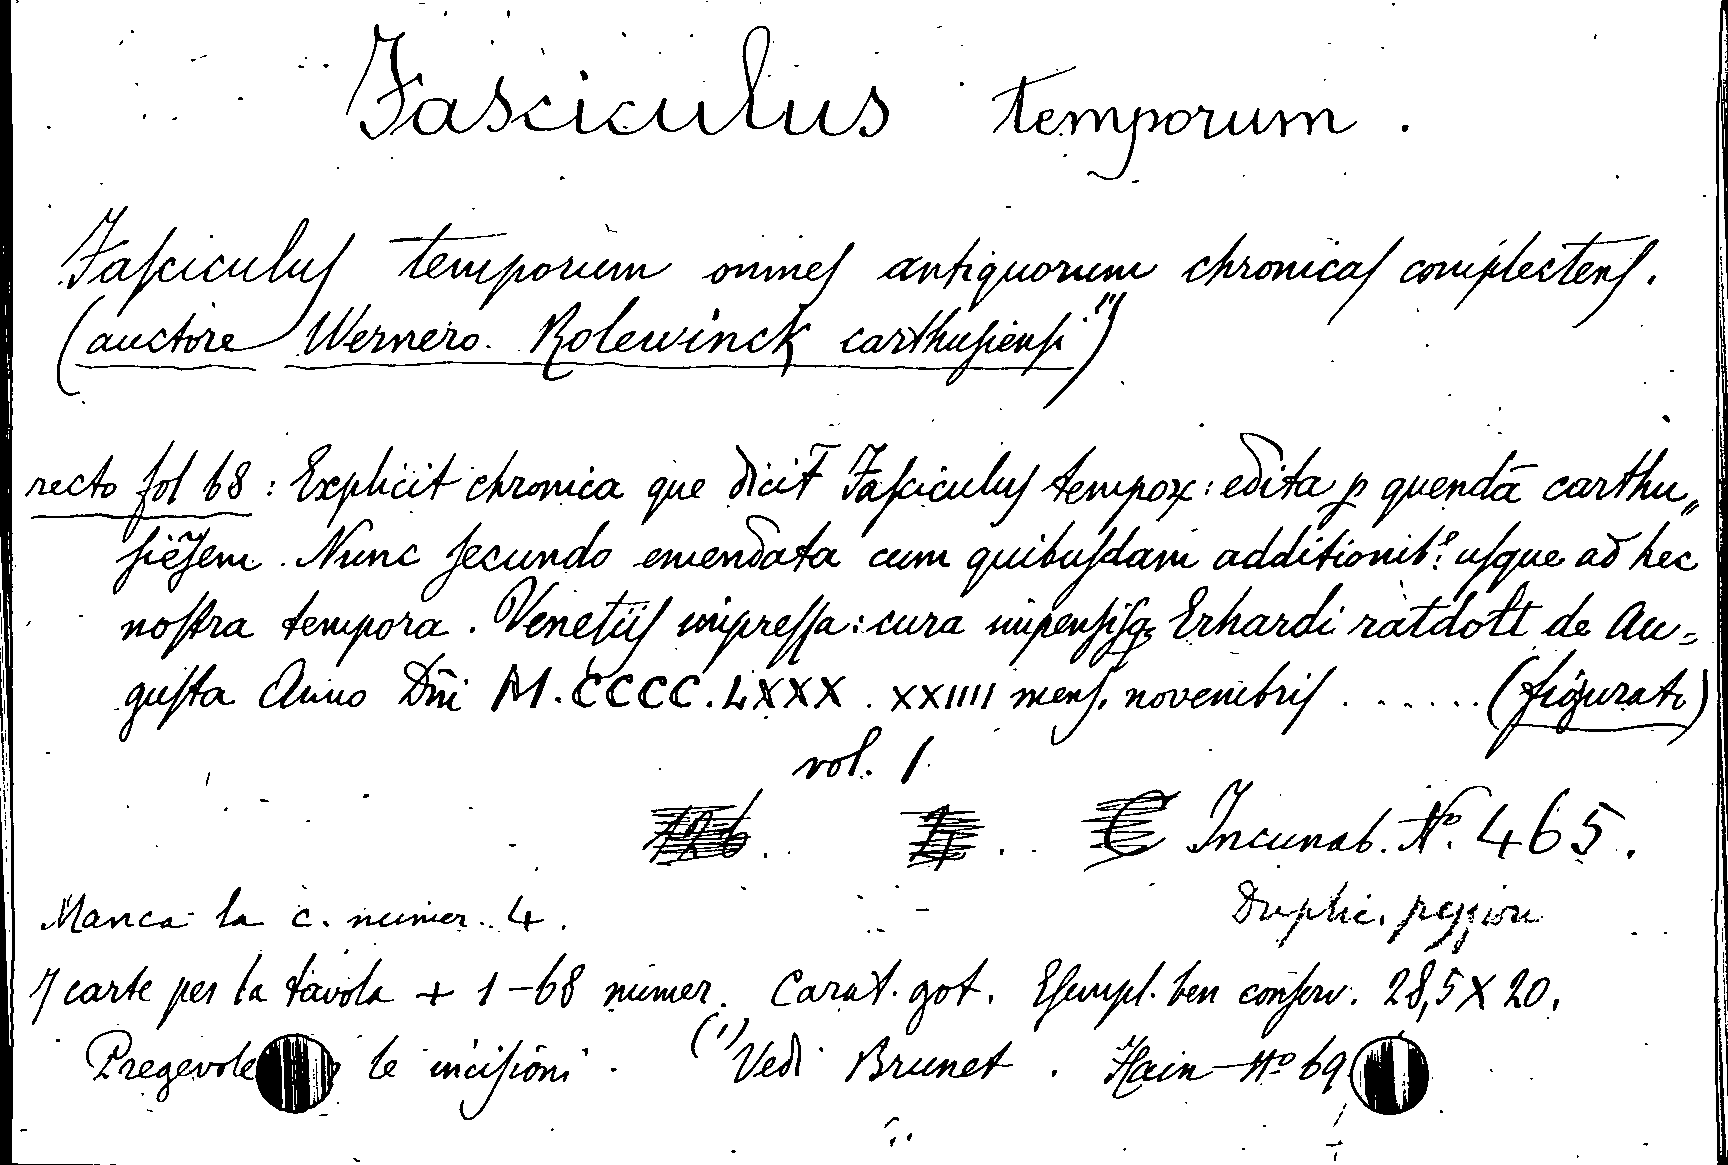 Fasciculus temporum.
Fasciculus temporum omnes antiquorum chronicas complectens.
(auctore Wernero Rolewinck carthusiensi ⁽¹⁾)
recto fol 68: Explicit chronica que dicit̄ Fasciculus tempoꝝ: edita ꝑ quendā carthu„
siēsem. Nunc secundo emendata cum quibusdam additionib⁹: usque ad hec
nostra tempora. Venetiis impressa: cura impensisqꝫ Erhardi ratdolt de Au=
gusta Anno Dñi M.CCCC.LXXX. XXIIII mens. novembris ......(figurato)
vol. 1
126. 4. C Incunab. Nº. 465.
Manca la c. numer. 4.
Duplic.
7 carte per la tavola + 1-68 numer. Carat. got. Esempl. ben conserv. 28,5 X 20.
Pregevole le incisioni. (¹) Vedi Brunet. Hain Nº 69